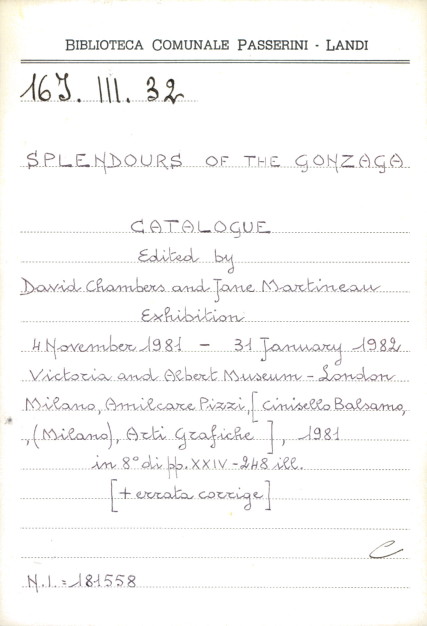 BIBLIOTECA COMUNALE PASSERINI - LANDI
16J. III. 32
SPLENDOURS OF THE GONZAGA
CATALOGUE
Edited by
David Chambers and Jane Martineau
Exhibition
4 November 1981 - 31 January 1982
Victoria and Albert Museum - London
Milano, Amilcare Pizzi, [Cinisello Balsamo,
,(Milano), Arti Grafiche], 1981
in 8° di pp. XXIV-248 ill.
[+ errata corrige]
C
N.I. = 181558